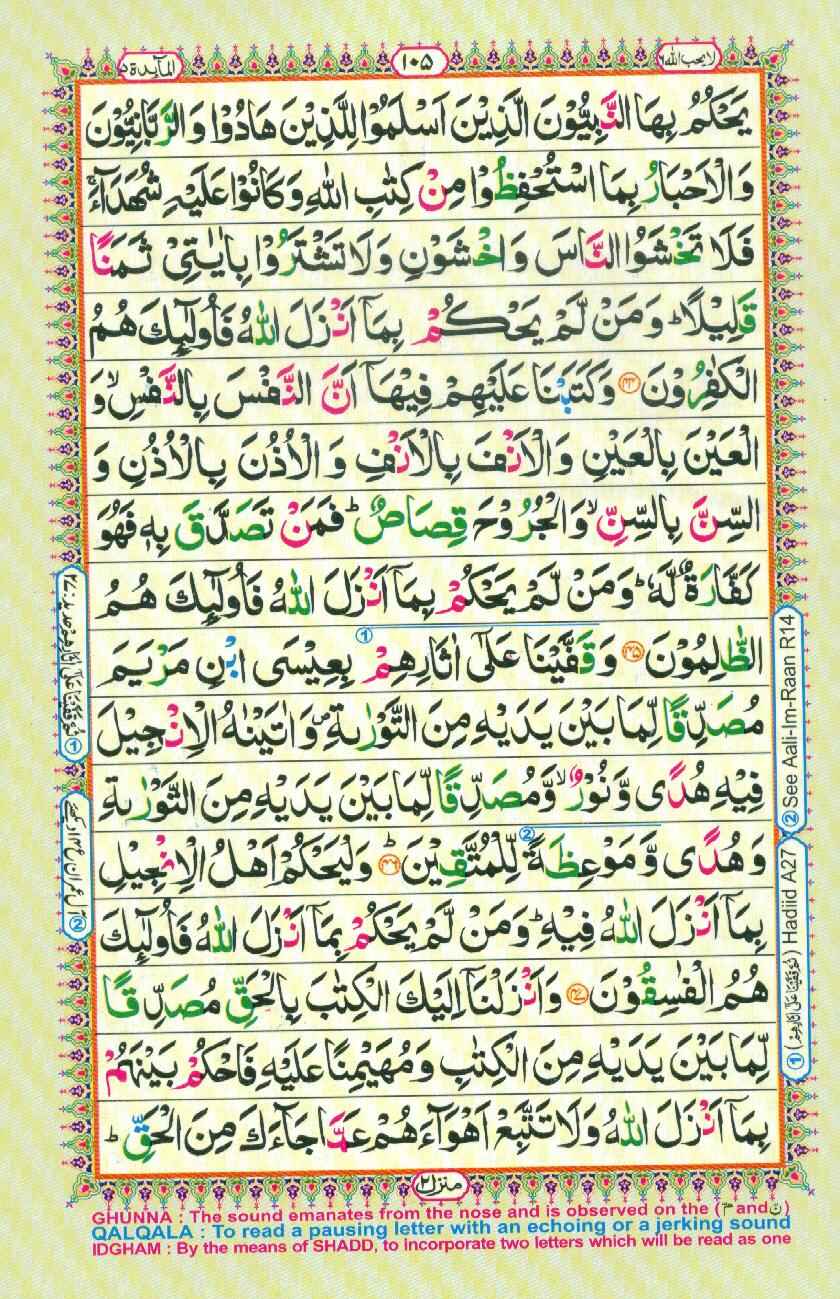 لا یحب اللہ ۶
۱۰۵
المآىِٕدة ۵
يَحْكُمُ بِهَا النَّبِيُّوْنَ الَّذِيْنَ اَسْلَمُوْا لِلَّذِيْنَ هَادُوْا وَالرَّبّٰنِيُّوْنَ
وَالْاَحْبَارُ بِمَا اسْتُحْفِظُوْا مِنْ كِتٰبِ اللّٰهِ وَكَانُوْا عَلَيْهِ شُهَدَآءَ ۚ
فَلَا تَخْشَوُا النَّاسَ وَاخْشَوْنِ وَلَا تَشْتَرُوْا بِاٰيٰتِيْ ثَمَنًا
قَلِيْلًا ؕ وَمَنْ لَّمْ يَحْكُمْ بِمَاۤ اَنْزَلَ اللّٰهُ فَاُولٰٓىِٕكَ هُمُ
الْكٰفِرُوْنَ ۴۴ وَكَتَبْنَا عَلَيْهِمْ فِيْهَاۤ اَنَّ النَّفْسَ بِالنَّفْسِ ۙ وَ
الْعَيْنَ بِالْعَيْنِ وَالْاَنْفَ بِالْاَنْفِ وَالْاُذُنَ بِالْاُذُنِ وَ
السِّنَّ بِالسِّنِّ ۙ وَالْجُرُوْحَ قِصَاصٌ ؕ فَمَنْ تَصَدَّقَ بِهٖ فَهُوَ
كَفَّارَةٌ لَّهٗ ؕ وَمَنْ لَّمْ يَحْكُمْ بِمَاۤ اَنْزَلَ اللّٰهُ فَاُولٰٓىِٕكَ هُمُ
الظّٰلِمُوْنَ ۴۵ وَقَفَّيْنَا عَلٰۤى اٰثَارِهِمْ بِعِيْسَى ابْنِ مَرْيَمَ
مُصَدِّقًا لِّمَا بَيْنَ يَدَيْهِ مِنَ التَّوْرٰىةِ ۪ وَاٰتَيْنٰهُ الْاِنْجِيْلَ
فِيْهِ هُدًى وَّنُوْرٌ ۙ وَّمُصَدِّقًا لِّمَا بَيْنَ يَدَيْهِ مِنَ التَّوْرٰىةِ
وَهُدًى وَّمَوْعِظَةً لِّلْمُتَّقِيْنَ ؕ ۴۶ وَلْيَحْكُمْ اَهْلُ الْاِنْجِيْلِ
بِمَاۤ اَنْزَلَ اللّٰهُ فِيْهِ ؕ وَمَنْ لَّمْ يَحْكُمْ بِمَاۤ اَنْزَلَ اللّٰهُ فَاُولٰٓىِٕكَ
هُمُ الْفٰسِقُوْنَ ۴۷ وَاَنْزَلْنَاۤ اِلَيْكَ الْكِتٰبَ بِالْحَقِّ مُصَدِّقًا
لِّمَا بَيْنَ يَدَيْهِ مِنَ الْكِتٰبِ وَمُهَيْمِنًا عَلَيْهِ فَاحْكُمْ بَيْنَهُمْ
بِمَاۤ اَنْزَلَ اللّٰهُ وَلَا تَتَّبِعْ اَهْوَآءَهُمْ عَمَّا جَآءَكَ مِنَ الْحَقِّ ؕ
② See Aali-Im-Raan R14
① (ثُمَّ قَفَّيْنَا عَلٰۤى اٰثَارِهِمْ) Hadiid A27
منزل ۲
GHUNNA : The sound emanates from the nose and is observed on the (مّ and نّ)
QALQALA : To read a pausing letter with an echoing or a jerking sound
IDGHAM : By the means of SHADD, to incorporate two letters which will be read as one